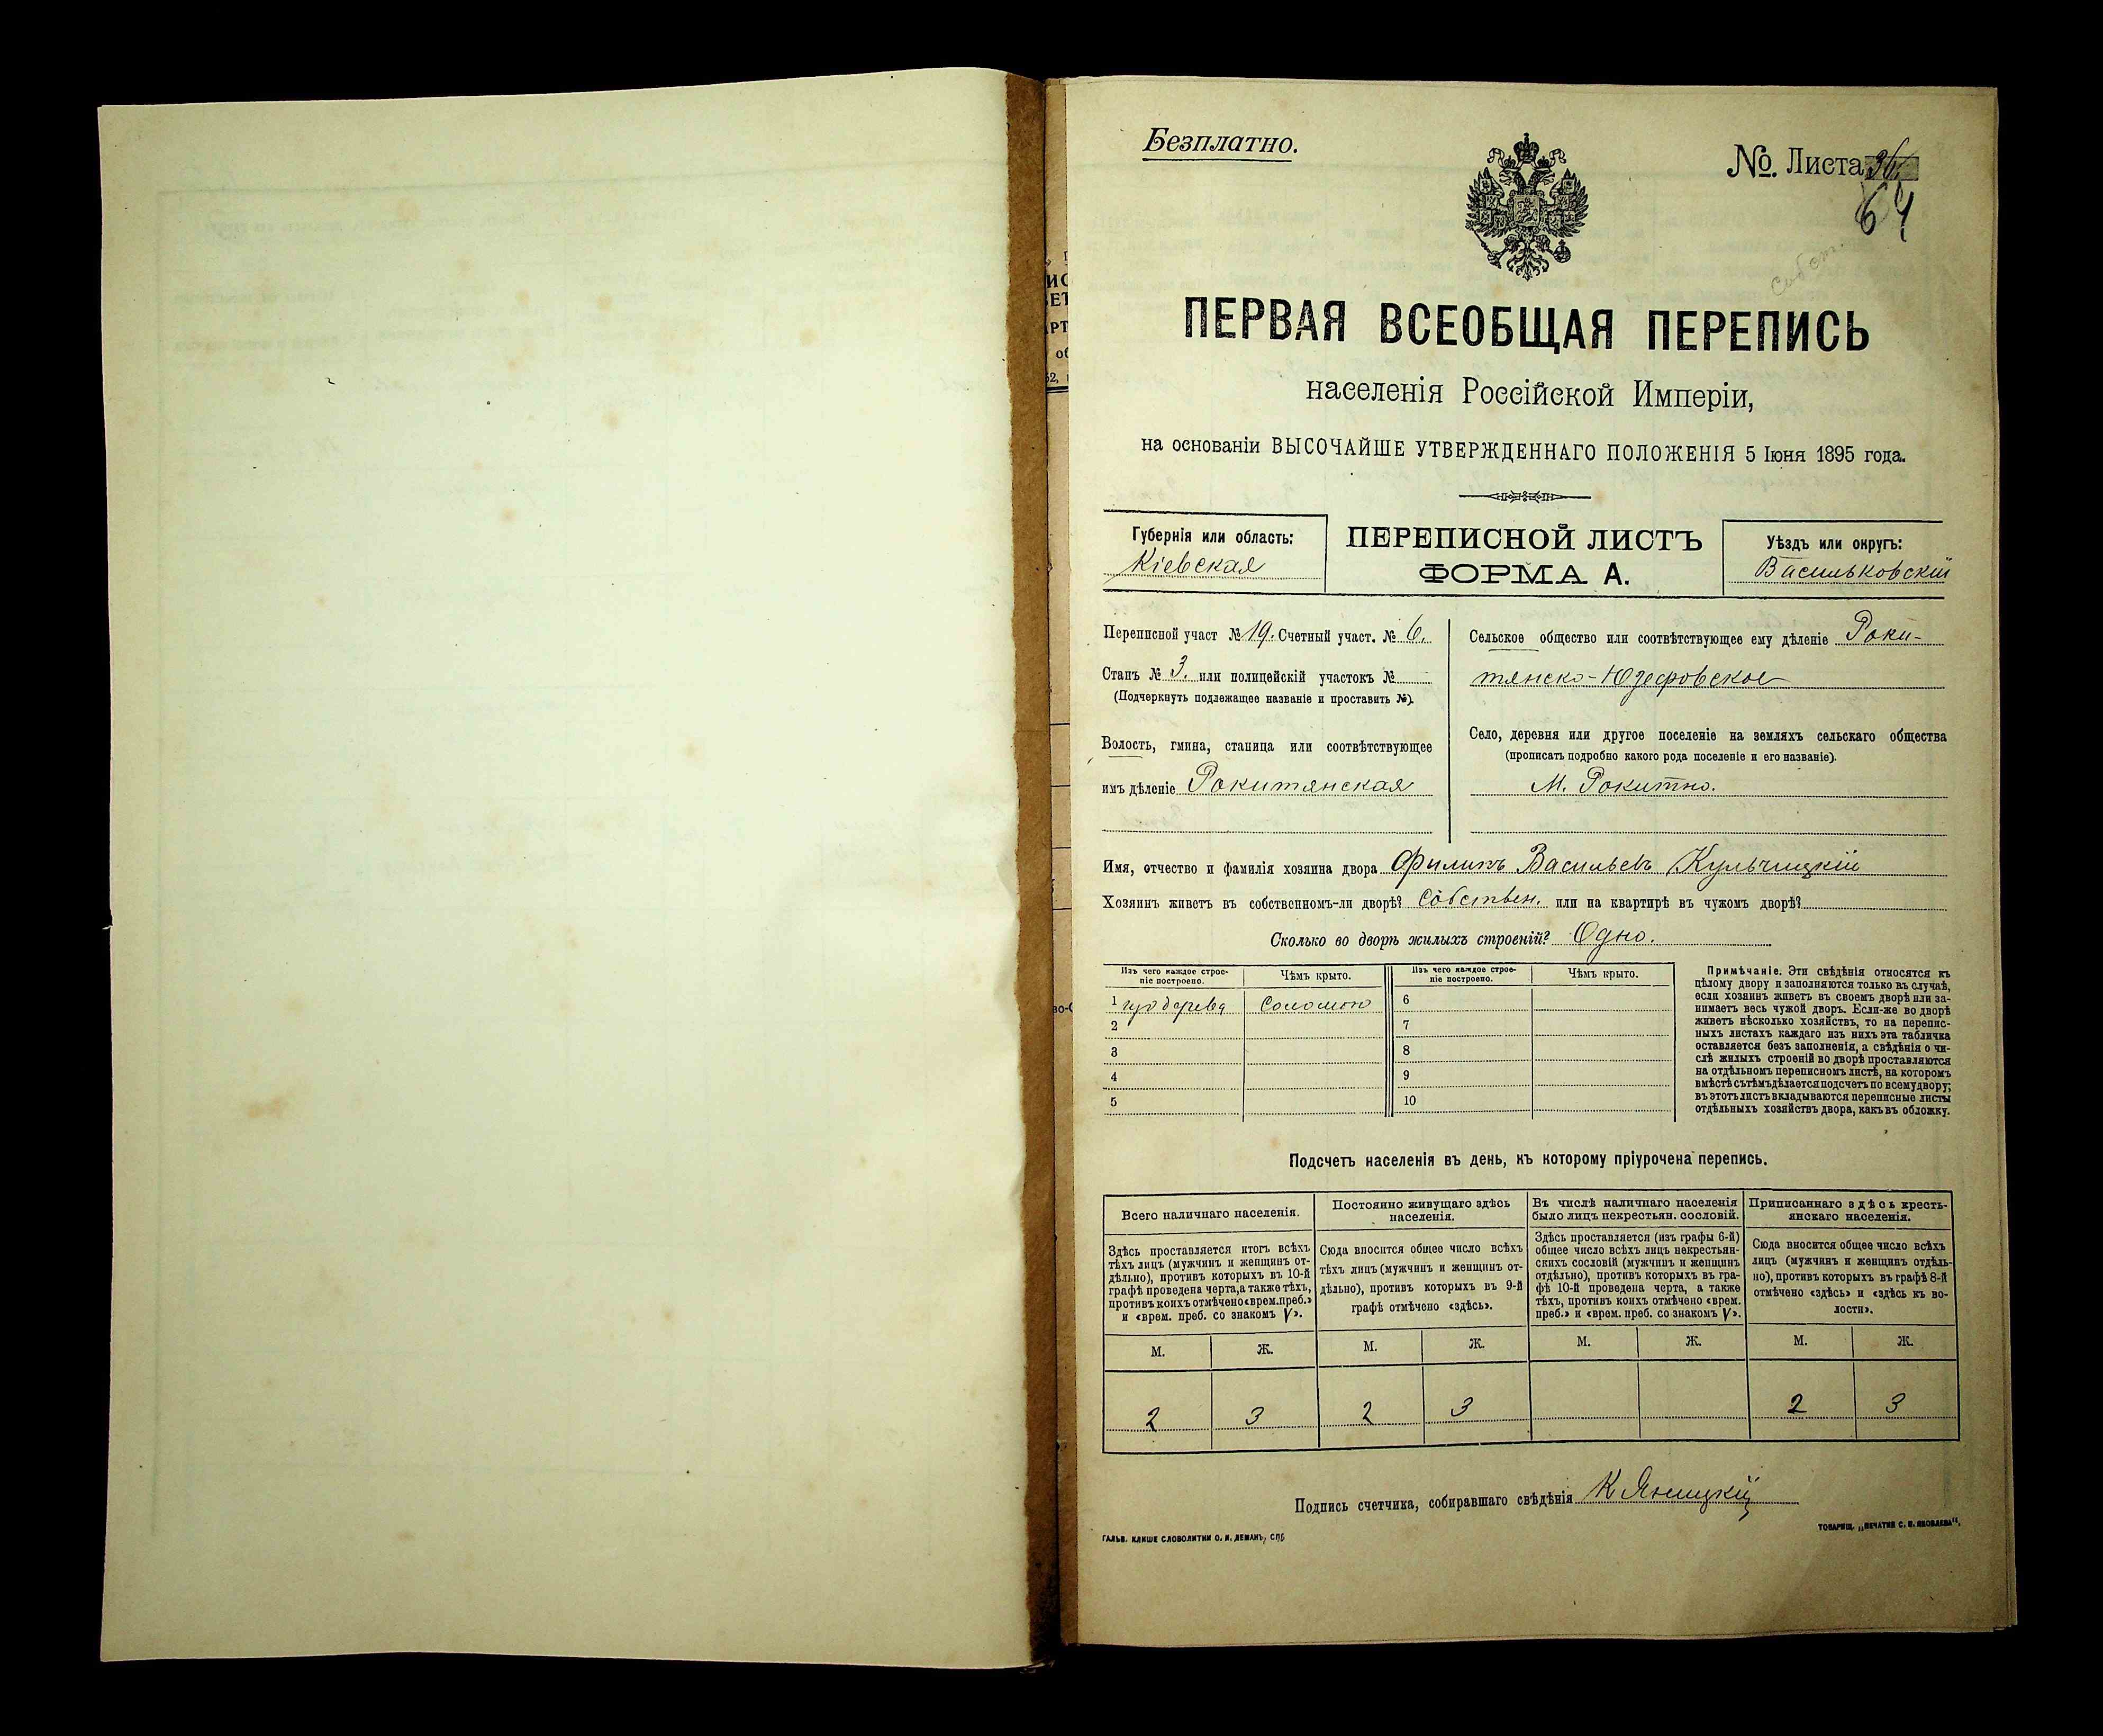 Безплатно.
№. Листа 36.
64
ПЕРВАЯ ВСЕОБЩАЯ ПЕРЕПИСЬ
населенія Россійской Имперіи,
на основаніи ВЫСОЧАЙШЕ УТВЕРЖДЕННАГО ПОЛОЖЕНІЯ 5 Іюня 1895 года.
Губернія или область:
Кіевская
ПЕРЕПИСНОЙ ЛИСТЪ
ФОРМА А.
Уѣздъ или округъ:
Васильковскій
Переписной участ № 19. Счетный участ. № 6.
Станъ № 3. или полицейскій участокъ №
(Подчеркнуть подлежащее названіе и проставить №).
Волость, гмина, станица или соотвѣтствующее
имъ дѣленіе Рокитянская
Сельское общество или соотвѣтствующее ему дѣленіе Роки-
тянско-Юзефовское
Село, деревня или другое поселеніе на земляхъ сельскаго общества
(прописать подробно какого рода поселеніе и его названіе).
М. Рокитно.
Имя, отчество и фамилія хозяина двора Филипъ Васильевъ Кульчицкій
Хозяинъ живетъ въ собственномъ-ли дворѣ? Собствен. или на квартирѣ въ чужомъ дворѣ?
Сколько во дворѣ жилыхъ строеній? Одно.
Изъ чего каждое строе-
ніе построено.
Чѣмъ крыто.
Изъ чего каждое строе-
ніе построено.
Чѣмъ крыто.
1 изъ дерева Соломою 6
2 7
3 8
4 9
5 10
Примѣчаніе. Эти свѣдѣнія относятся къ
цѣлому двору и заполняются только въ случаѣ,
если хозяинъ живетъ въ своемъ дворѣ или за-
нимаетъ весь чужой дворъ. Если-же во дворѣ
живетъ нѣсколько хозяйствъ, то на перепис-
ныхъ листахъ каждаго изъ нихъ эта табличка
оставляется безъ заполненія, а свѣдѣнія о чи-
слѣ жилыхъ строеній во дворѣ проставляются
на отдѣльномъ переписномъ листѣ, на которомъ
вмѣстѣ съ тѣмъ дѣлается подсчетъ по всему двору;
въ этотъ листъ вкладываются переписные листы
отдѣльныхъ хозяйствъ двора, какъ въ обложку.
Подсчетъ населенія въ день, къ которому пріурочена перепись.
Всего наличнаго населенія.
Здѣсь проставляется итогъ всѣхъ
тѣхъ лицъ (мужчинъ и женщинъ от-
дѣльно), противъ которыхъ въ 10-й
графѣ проведена черта, а также тѣхъ,
противъ коихъ отмѣчено «врем. преб.»
и «врем. преб. со знакомъ V».
Постоянно живущаго здѣсь
населенія.
Сюда вносится общее число всѣхъ
тѣхъ лицъ (мужчинъ и женщинъ от-
дѣльно), противъ которыхъ въ 9-й
графѣ отмѣчено «здѣсь».
Въ числѣ наличнаго населенія
было лицъ некрестьян. сословій.
Здѣсь проставляется (изъ графы 6-й)
общее число всѣхъ лицъ некрестьян-
скихъ сословій (мужчинъ и женщинъ
отдѣльно), противъ которыхъ въ гра-
фѣ 10-й проведена черта, а также
тѣхъ, противъ коихъ отмѣчено «врем.
преб.» и «врем. преб. со знакомъ V».
Приписаннаго здѣсь кресть-
янскаго населенія.
Сюда вносится общее число всѣхъ
лицъ (мужчинъ и женщинъ отдѣль-
но), противъ которыхъ въ графѣ 8-й
отмѣчено «здѣсь» и «здѣсь къ во-
лости».
М. Ж. М. Ж. М. Ж. М. Ж.
2 3 2 3 2 3
Подпись счетчика, собиравшаго свѣдѣнія К Яницкій
ГАЛЬВ. КЛИШЕ СЛОВОЛИТНИ О. И. ЛЕМАНЪ, СПБ
ТОВАРИЩ. „ПЕЧАТНЯ С. П. ЯКОВЛЕВА“.